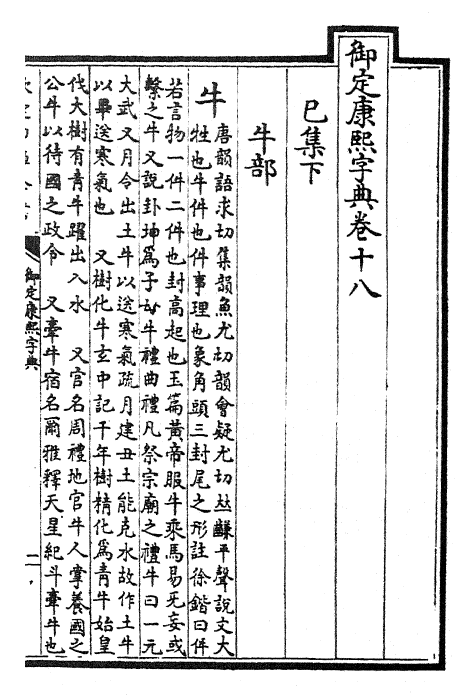 御定康熙字典卷十八
巳集下
牛部
牛
唐韻語求切集韻魚尤切韻會疑尤切𠀤䶈平聲說文大
牲也牛件也件事理也象角頭三封尾之形註徐鍇曰件
若言物一件二件也封高起也玉篇黃帝服牛乘馬易无妄或
繫之牛又說卦坤爲子母牛禮曲禮凡祭宗廟之禮牛曰一元
大武又月令出土牛以送寒氣疏月建丑土能克水故作土牛
以畢送寒氣也 又樹化牛玄中記千年樹精化爲青牛始皇
伐大樹有青牛躍出入水 又官名周禮地官牛人掌養國之
公牛以待國之政令 又牽牛宿名爾雅釋天星紀斗牽牛也
御定康熙字典